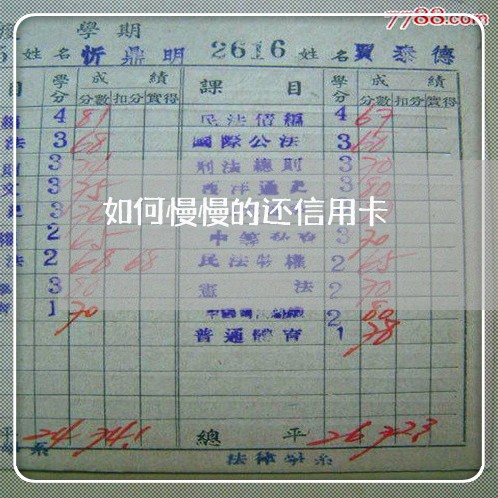 7788.com
學期
姓名 忻鼎明 2616 姓名 賈泰德
目 學分 成績 課目 學分 成績
分數 扣分 實得 分數 扣分 實得
4 81 民法債編 4 67
法 3 68 國際公法 3 60
3 刑法總則 3 70
3 75 西洋通史 3 80
如何慢慢的还信用卡
2 65 3 70
法 2 68 68 民法物權 2 65
3 80 憲法 2 70
1 70 2 80
普通體育 1 78
平 24 74.1 總平 26 72.3
系 法律學系